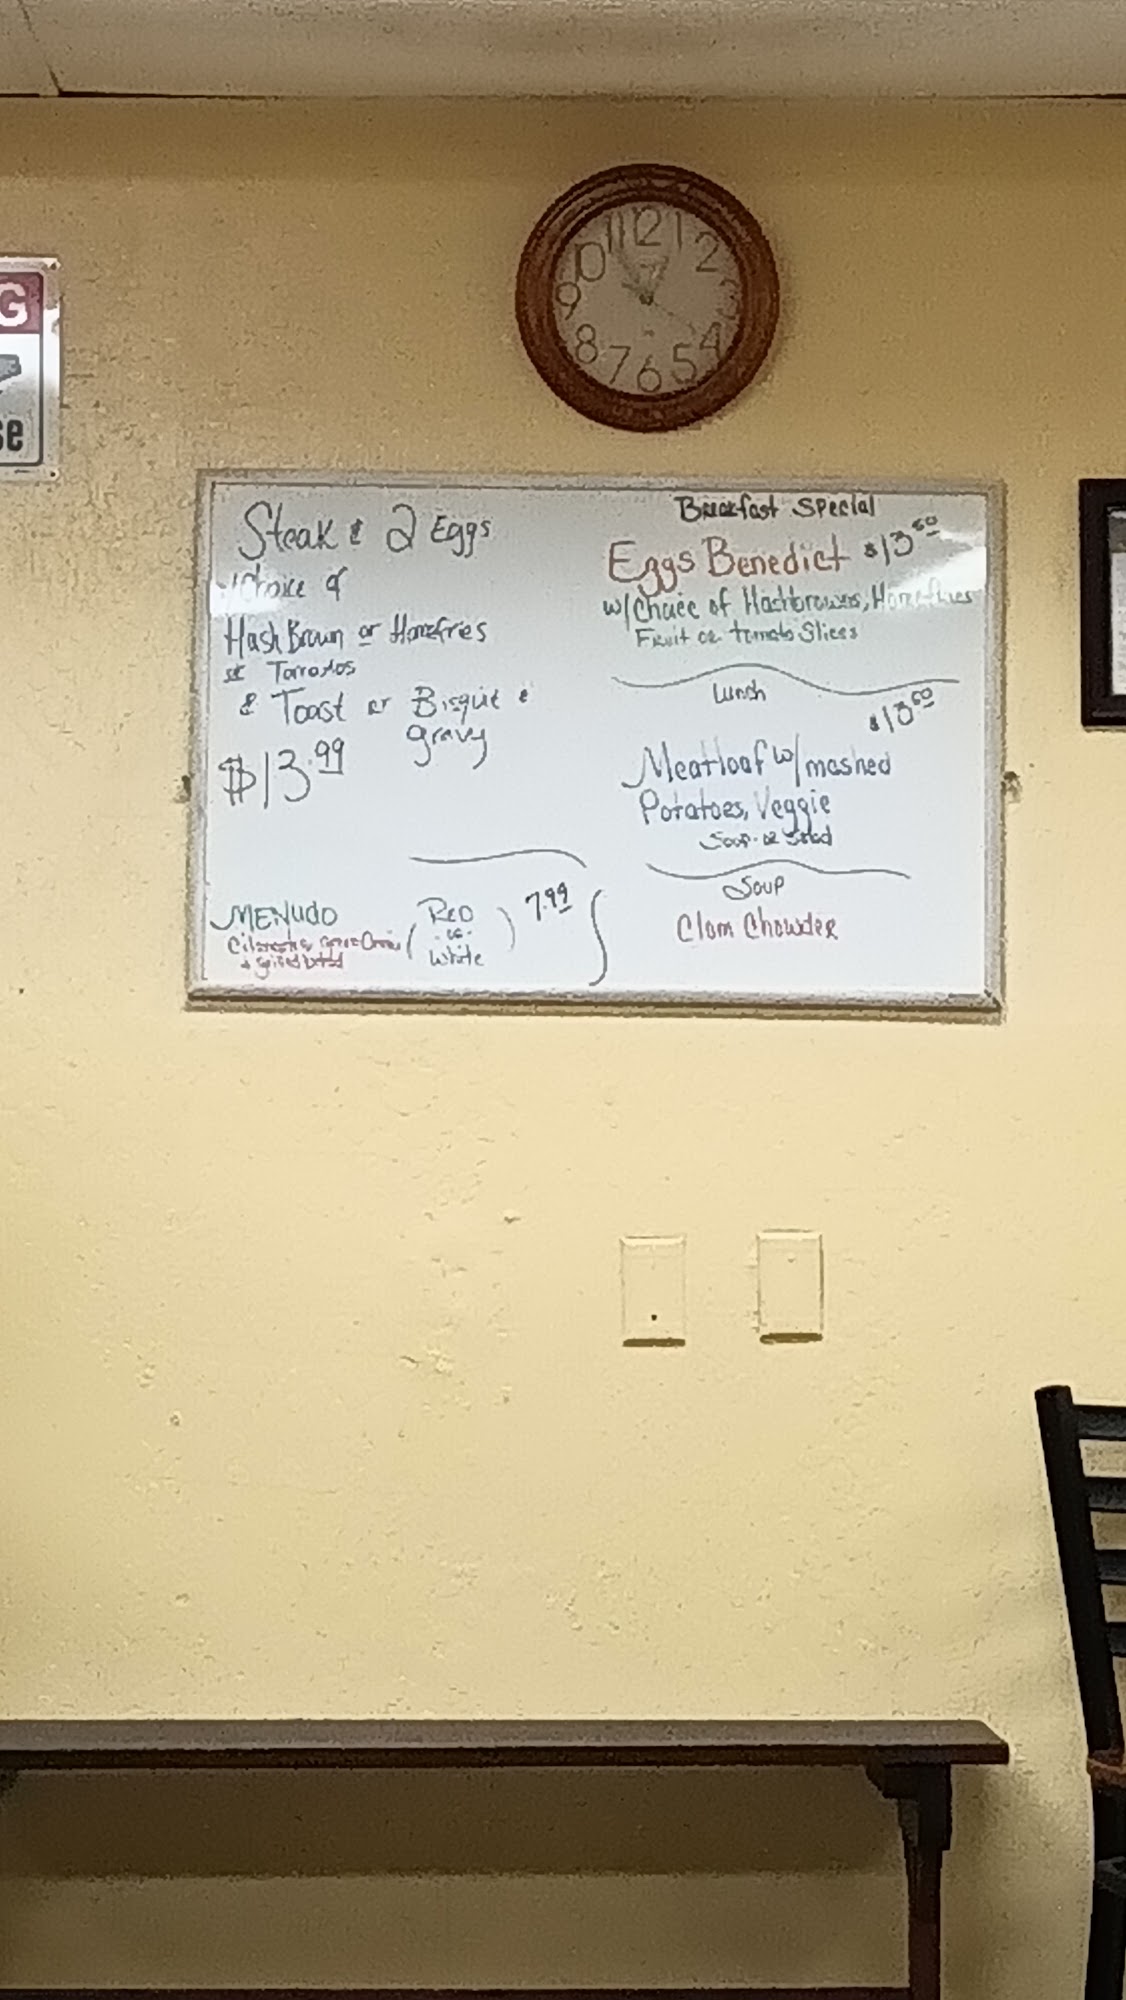 G
se
12
1
2
4
5
6
7
8
9
10
11
Steak & 2 Eggs
w/Choice of
Hash Brown or Homefries
or Tomatos
& Toast or Bisquit &
gravy
$13.99
MENUDO
(Red
or
White)
7.99
Breakfast Special
Eggs Benedict $13.50
w/Choice of Hashbrowns, Homefries
Fruit or tomato Slices
Lunch
$13.50
Meatloaf w/ mashed
Potatoes, Veggie
Soup or Salad
Soup
Clam Chowder